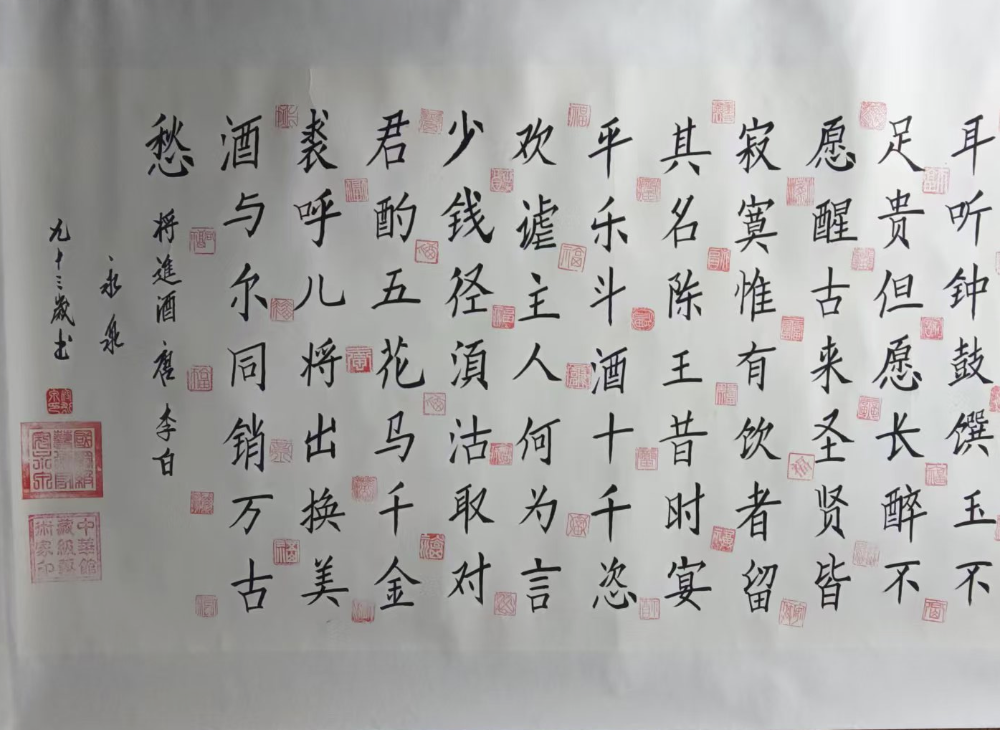 耳听钟鼓馔玉不
足贵但愿长醉不
愿醒古来圣贤皆
寂寞惟有饮者留
其名陈王昔时宴
平乐斗酒十千恣
欢谑主人何为言
少钱径湏沽取对
君酌五花马千金
裘呼儿将出换美
酒与尔同销万古
愁
将進酒 唐 李白
永泉
九十三歲书
中華館
藏級藝
術家印